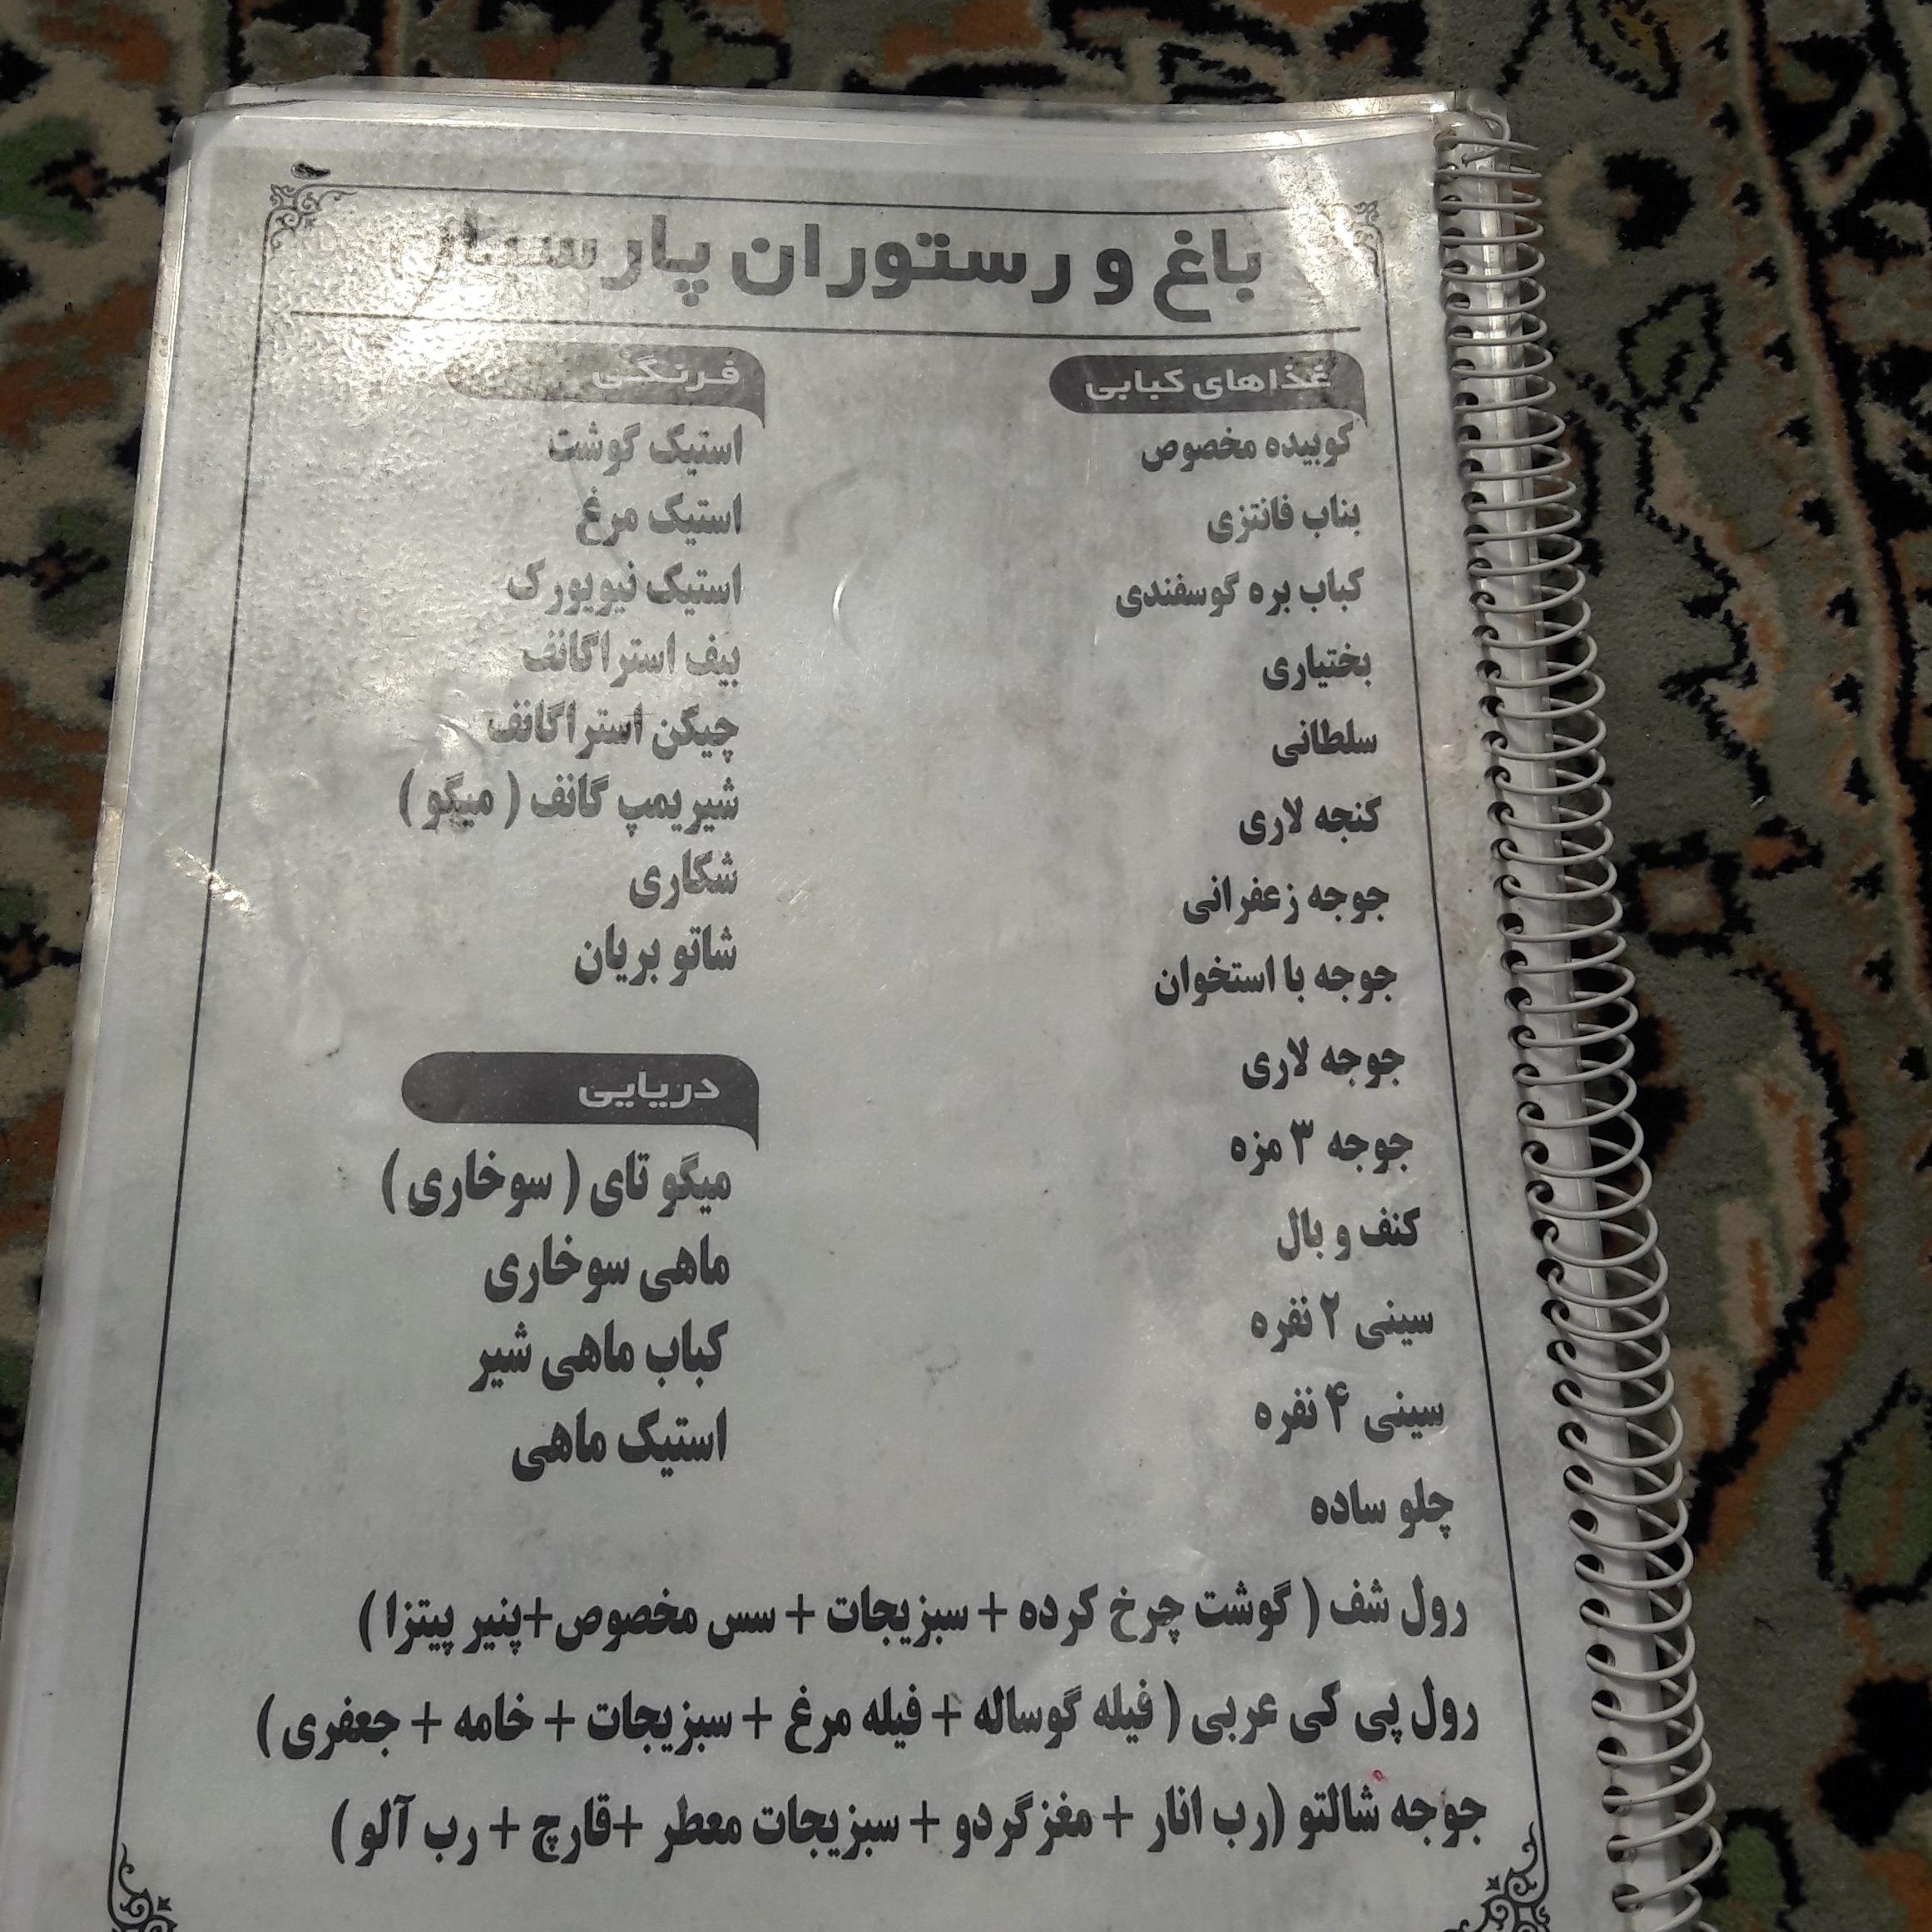 باغ و رستوران
غذاهای کبابی
کوبیده مخصوص
بناب فانتزی
کباب بره گوسفندی
بختیاری
سلطانی
کنجه لاری
جوجه زعفرانی
جوجه با استخوان
جوجه لاری
جوجه ۳ مزه
کتف و بال
سینی ۲ نفره
سینی ۴ نفره
چلو ساده
فرنگی
استیک گوشت
استیک مرغ
استیک نیویورک
بیف استراگانف
چیکن استراگانف
شیریمپ گانف ( میگو )
شکاری
شاتو بریان
دریایی
میگو تای ( سوخاری )
ماهی سوخاری
کباب ماهی شیر
استیک ماهی
رول شف ( گوشت چرخ کرده + سبزیجات + سس مخصوص+پنیر پیتزا )
رول پی کی عربی ( فیله گوساله + فیله مرغ + سبزیجات + خامه + جعفری )
جوجه شالتو (رب انار + مغزگردو + سبزیجات معطر +قارچ + رب آلو )